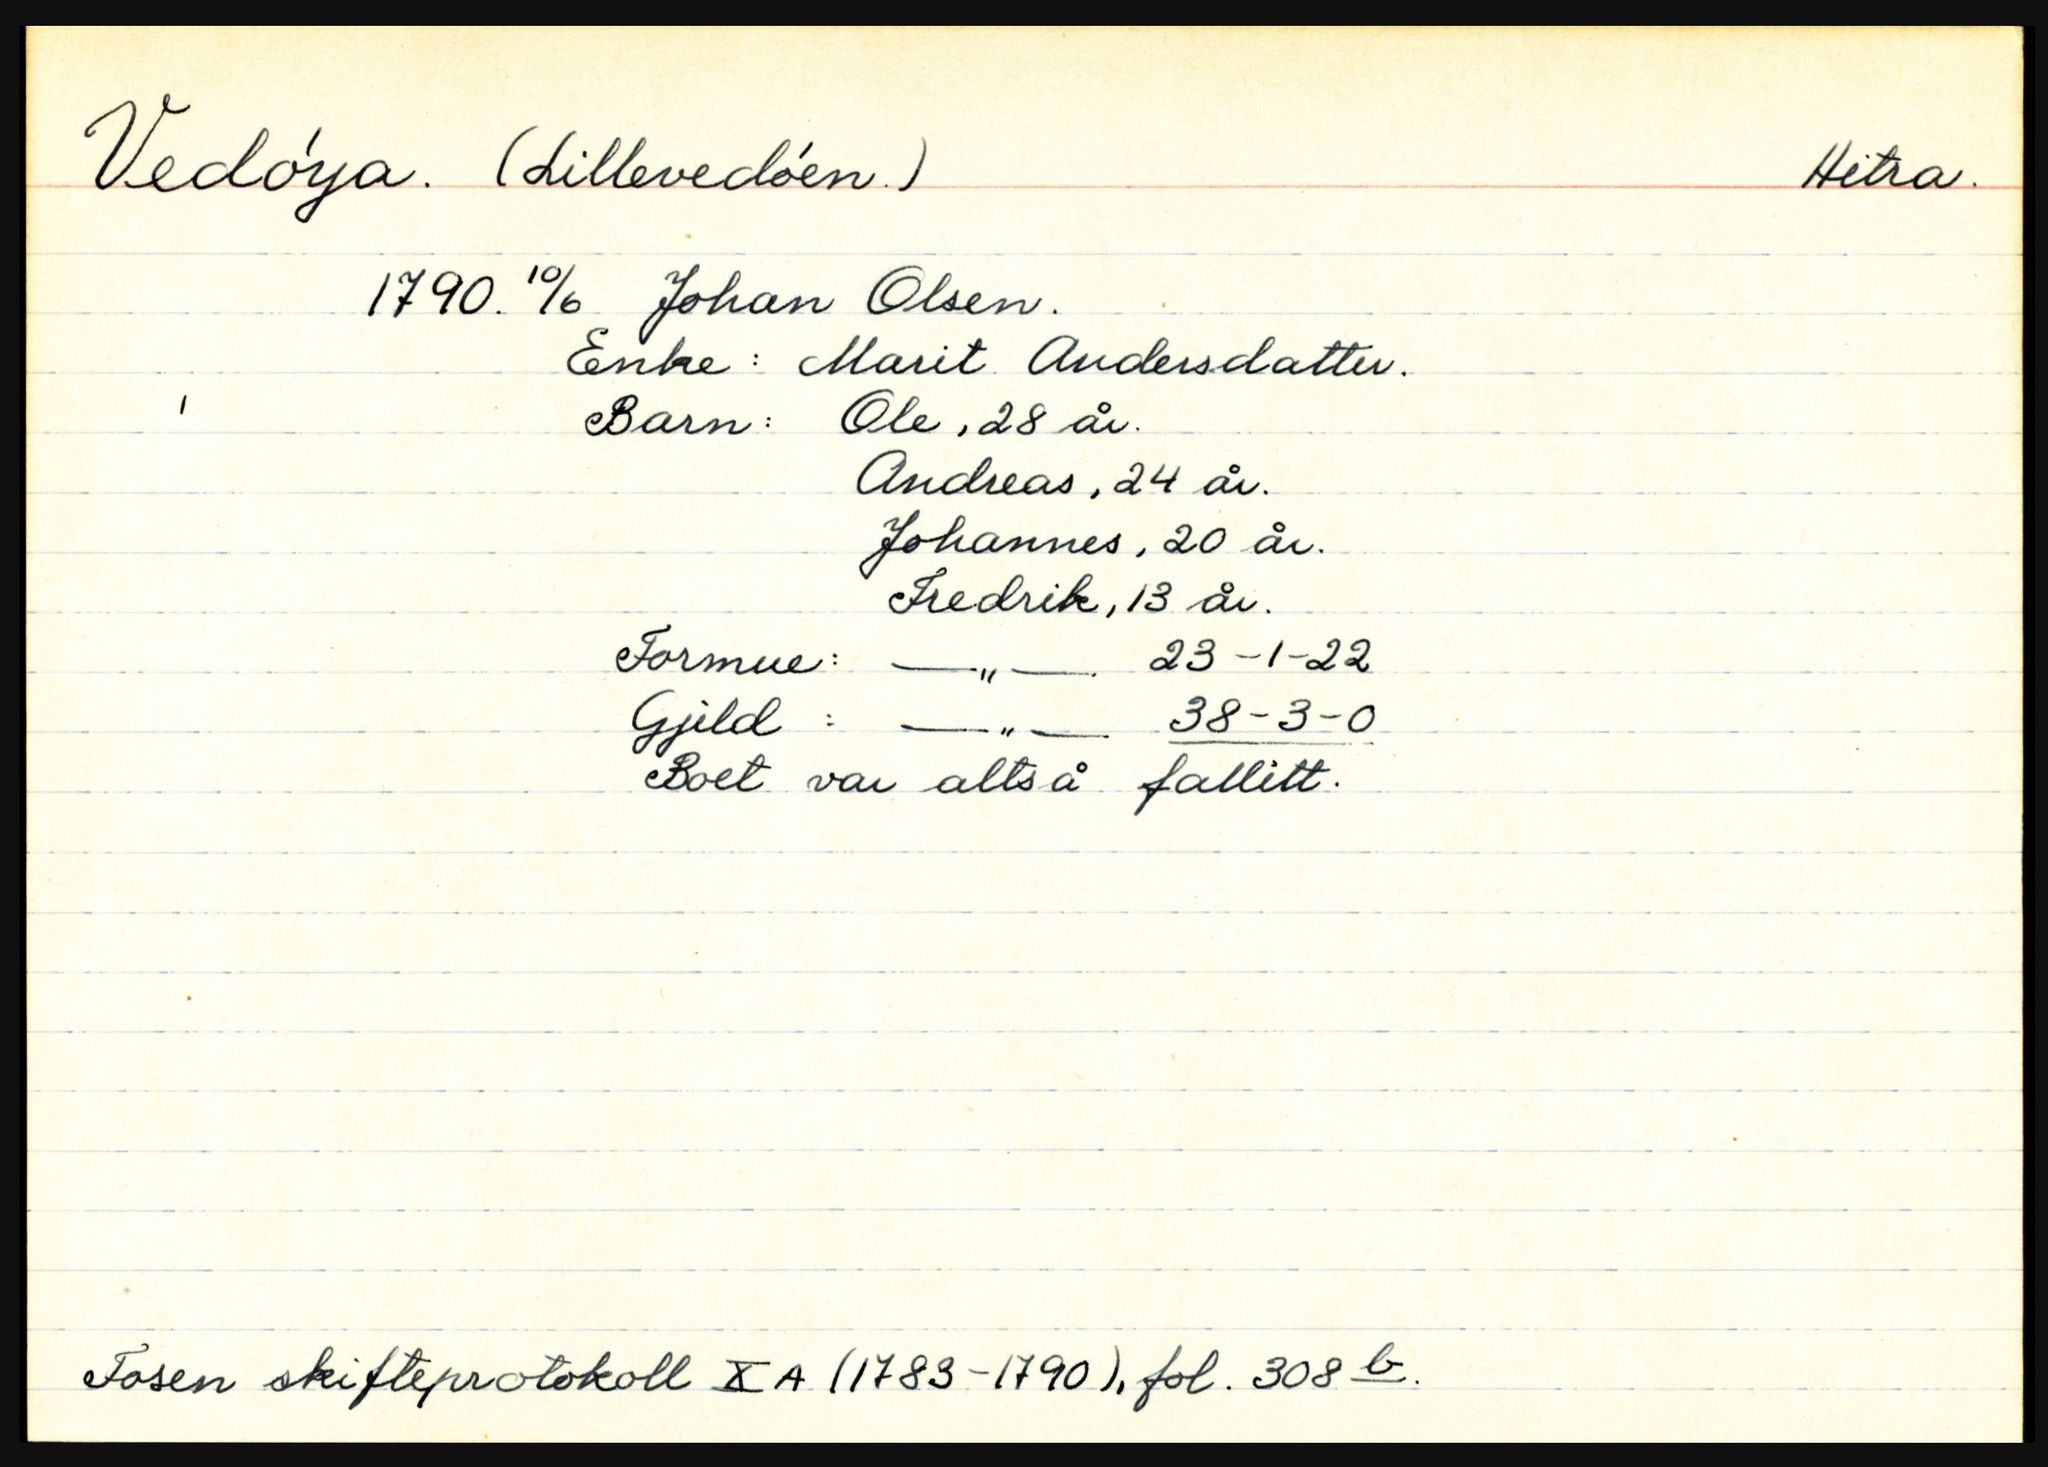 Vedóya. (Lillevedóen.) Hitra.
1790. 10/6 Johan Olsen.
Enke: Marit Andersdatter.
Barn: Ole, 28 år.
Andreas, 24 år.
Johannes, 20 år.
Fredrik, 13 år.
Formue: —„— 23-1-22
Gjeld : —„— 38-3-0
Boet var altså fallitt.
Fosen skifteprotokoll X A (1783-1790), fol. 308 b.